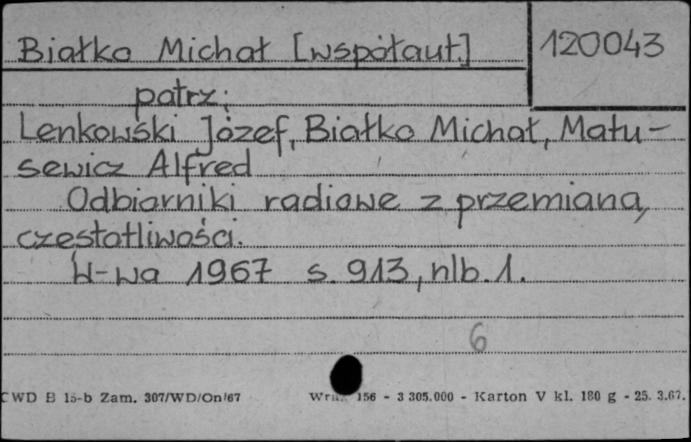 Białko Michał [współaut.]
120043
patrz:
Lenkowski Józef, Białko Michał, Matu-
sewicz Alfred
Odbiorniki radiowe z przemianą
częstotliwości.
W-wa 1967 s. 913, nlb. 1.
6
CWD B 15-b Zam. 307/WD/On/67
156 - 3 305.000 - Karton V kl. 180 g - 25. 3.67.